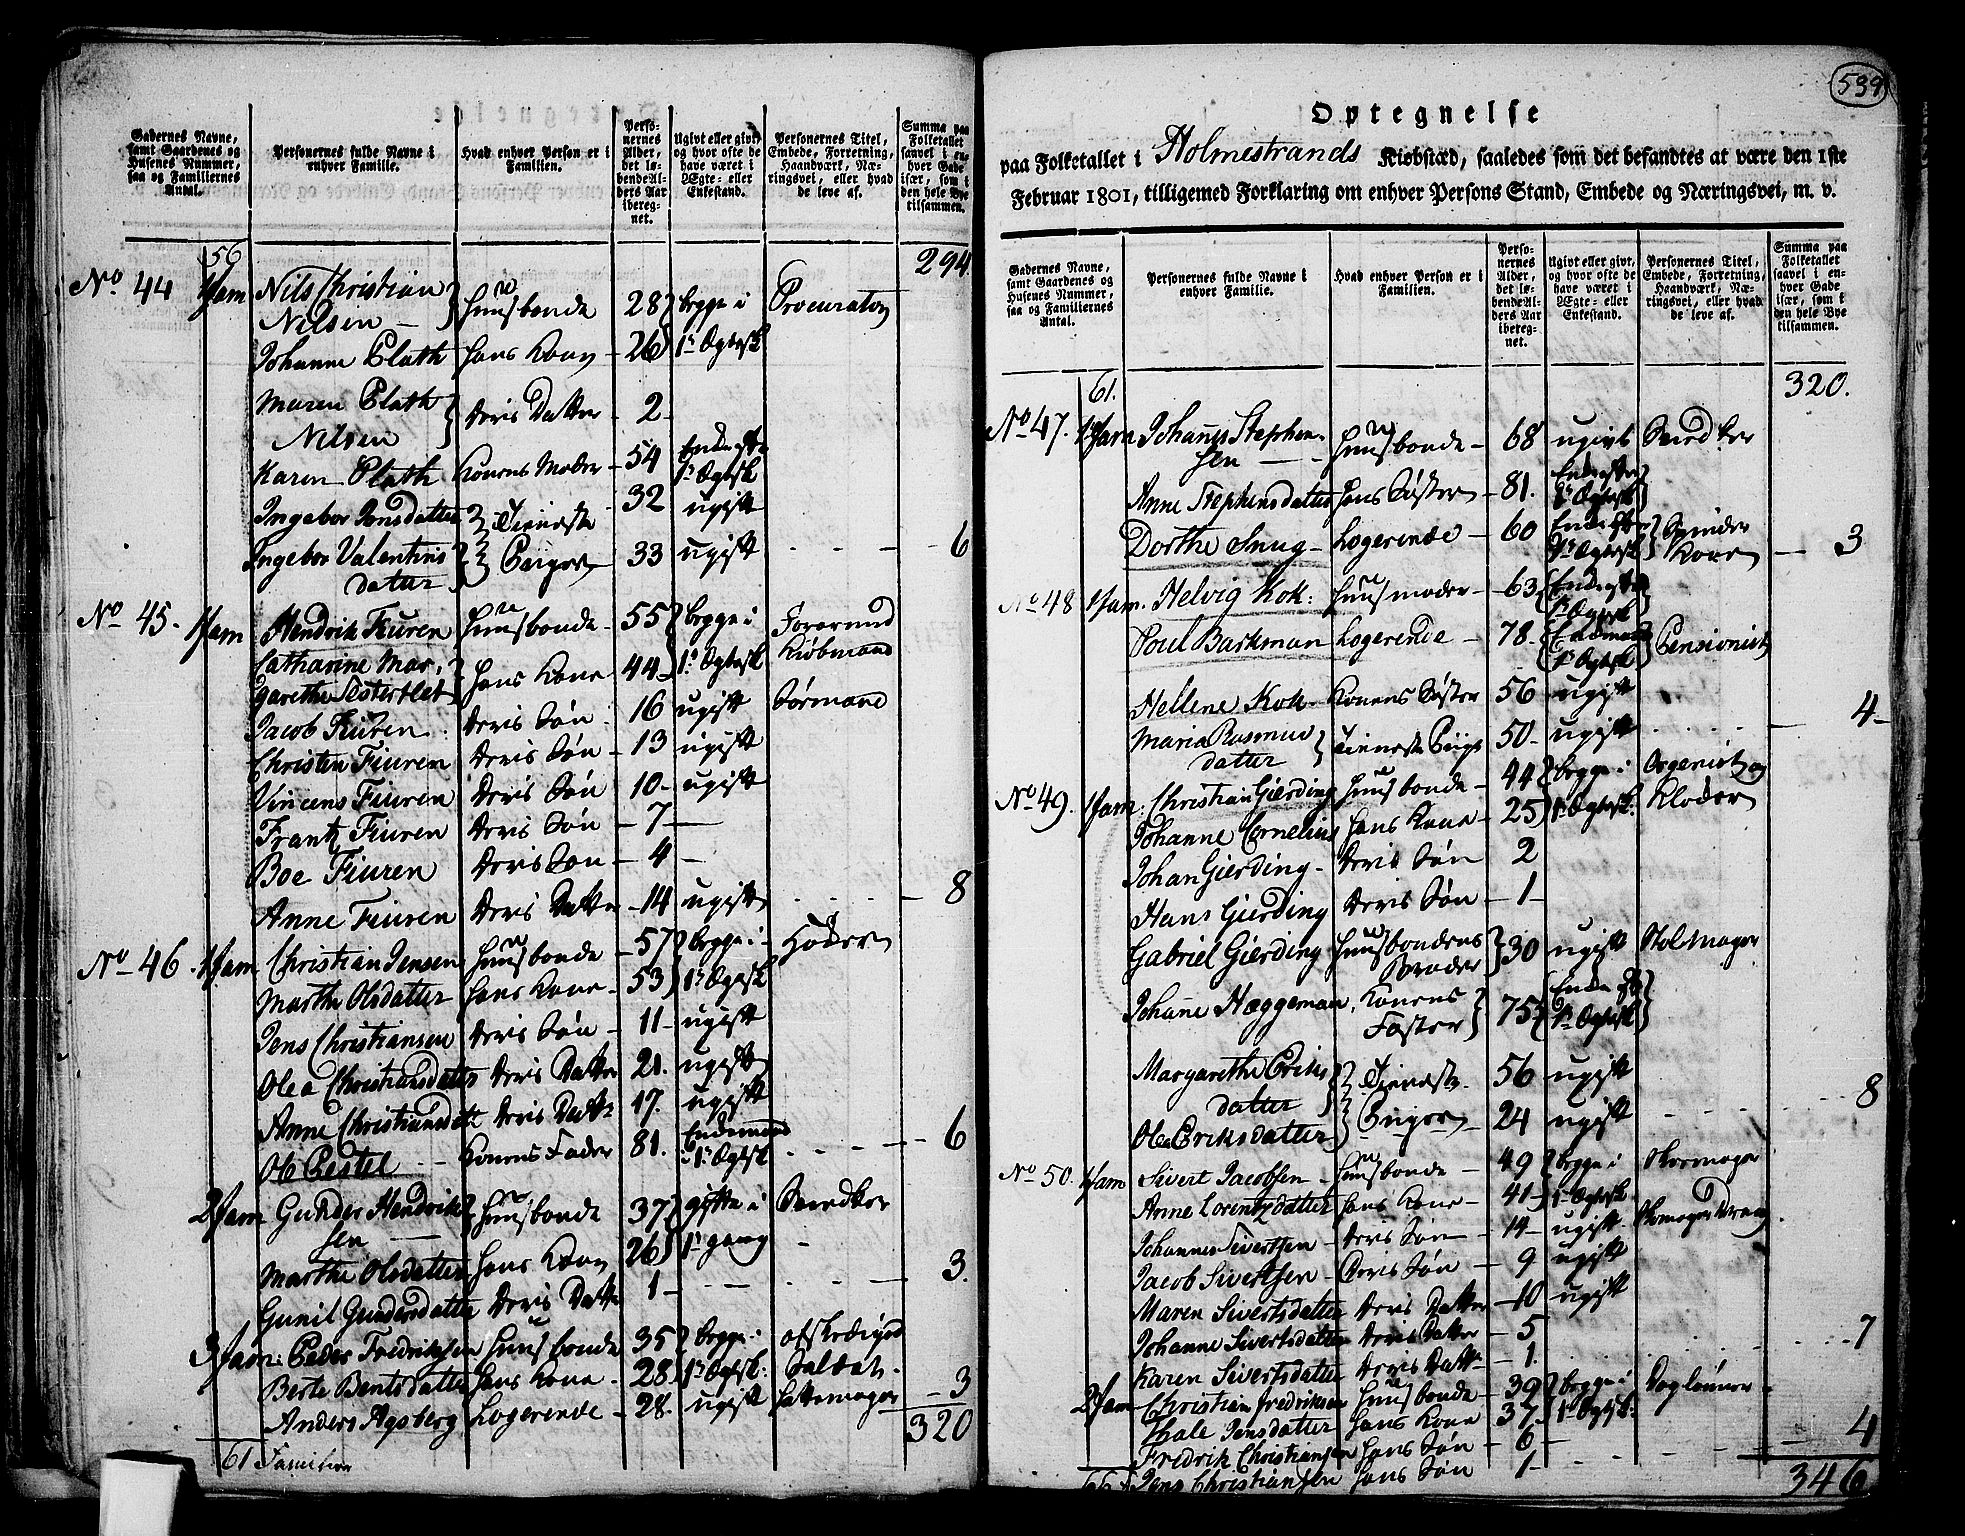 539
Gadernes Navne,
samt Gaardenes og
Husenes Nummer,
saa og Familiernes
Antal.
Personernes fulde Navne i
enhver Familie.
Hvad enhver Person er i
Familien.
Perso-
nernes
Alder,
det lø-
bende Al-
ders Aar
ibereg-
net.
Ugivt eller givt,
og hvor ofte de
have været i
Ægte- eller
Enkestand.
Personernes Titel,
Embede, Forretning,
Haandværk, Næ-
ringsvei, eller hvad
de leve af.
Summa paa
Folketallet
saavel i en-
hver Gade
især, som i
den hele Bye
tilsammen.
56 294.
No 44 1 fam Nils Christian
Nilsen — Huusbonde 28 begge i Procurator
Johanne Plath hans Kone 26 1te Ægtesk
Maren Plath
Nilsen deris Datter 2
Karen Plath Konens Moder 54 Enke efter 1te Ægtesk
Ingebor Jonsdatter Tieneste 32 ugift
Ingebor Valentins Piiger 33 ugift 6
datter
No 45. 1 fam Hendrik Fiuren Huusbonde 55 begge i Forarmed
Catharine Mar, Kiøbmand
garethe Sesterflet hans Kone 44 1te Ægtesk
Jacob Fiuren deris Søn 16 ugift Sømand
Christen Fiuren deris Søn 13 ugift
Vincens Fiuren deris Søn 10 ugift
Frantz Fiuren deris Søn 7
Boe Fiuren deris Søn 4
Anne Fiuren deris Datter 14 ugift 8
No 46. 1 fam Christian Jensen Huusbonde 57 begge i
Marthe Olsdatter hans Kone 53 1te Ægtesk
Jens Christiansen deris Søn 11 ugift
Olea Christiansdatter deris Datter 21. ugift
Anne Christiansdatt deris Datt 17. ugift
Ole Pestel Konens Fader 81. Enkemand 1te Ægtesk 6
2 fam Gunder Hendrik
sen — Huusbonde 37 gifte i Snedker
Marthe Olsdatter hans Kone 26 1te gang
Gunil Gundersdatter deris Datter 1 3.
3 fam: Peder Fredriksen Huusbonde 35 begge i afskediget
Berte Bentsdatter hans Kone 28 1te Ægtesk: Saldat
Anders Agsberg Logerende 28. ugift Hattemager 3
61 Familier 320
Optegnelse
paa Folketallet i Holmestrands Kiøbstæd, saaledes som det befandtes at være den 1ste
Februar 1801, tilligemed Forklaring om enhver Persons Stand, Embede og Næringsvei, m. v.
Gadernes Navne,
samt Gaardenes og
Husenes Nummer,
saa og Familiernes
Antal.
Personernes fulde Navne i
enhver Familie.
Hvad enhver Person er i
Familien.
Perso-
nernes
Alder,
det lø-
bende Al-
ders Aar
ibereg-
net.
Ugivt eller givt,
og hvor ofte de
have været i
Ægte- eller
Enkestand.
Personernes Titel,
Embede, Forretning,
Haandværk, Næ-
ringsvei, eller hvad
de leve af.
Summa paa
Folketallet
saavel i en-
hver Gade
især, som i
den hele Bye
tilsammen.
61. 320.
No 47. 1 fam Johannes Stephen-
sen — Huusbonde 68 ugivt Snedker
Anne Stephensdatter hans Søster 81. Enke efter 1te Ægtesk
Dorthe Snug Logerende 60 Enke efter 1te Ægtesk Spinder Kone 3
No 48 1 fam. Helvig Kok: Huusmoder 63 Enke efter 1te Ægtesk
Poul Barkman Logerende 78. Enkemand 1te Ægtesk Pensionist
Hellene Kok Konens Søster 56 ugift
Maria Rasmus
datter Tieneste Piige 50 ugift 4
No 49. 1 fam: Christian Gierding Huusbonde 44 begge i Organist og
Johanne Cornelius hans Kone 25 1te Ægtesk: Klokker
Johan Gierding deris Søn 2
Hans Gierding deris Søn 1
Gabriel Gierding Huusbondens Broder 30 ugift Stolmager
Johanne Hæggeman, Konens Faster 75 Enke efter 1te Ægtesk
Margarethe Eriks
datter Tieneste 56 ugift
Olea Eriksdatter Piiger 24 ugift 8
No 50. 1 fam Sivert Jacobsen Huusbonde 49 begge i Skomager
Anne Lorentzdatter hans Kone 41 1te Ægtesk
Johannes Sivertsen deris Søn 14 ugift Skomager Dreng
Jacob Sivertsen Deris Søn 9 ugift
Maren Sivertsdatter deris Datter 10 ugift
Johanne Sivertsdatter deris Datter 5
Karen Sivertsdatter deris Datt 1. 7
2 fam Christian fredriksen Huusbonde 39 begge i Dagleiner
Hale Jensdatter hans Kone 37. 1te Ægtesk:
Fredrik Christiansen hans Søn 6
Jens Christiansen hans Søn 1 4
346